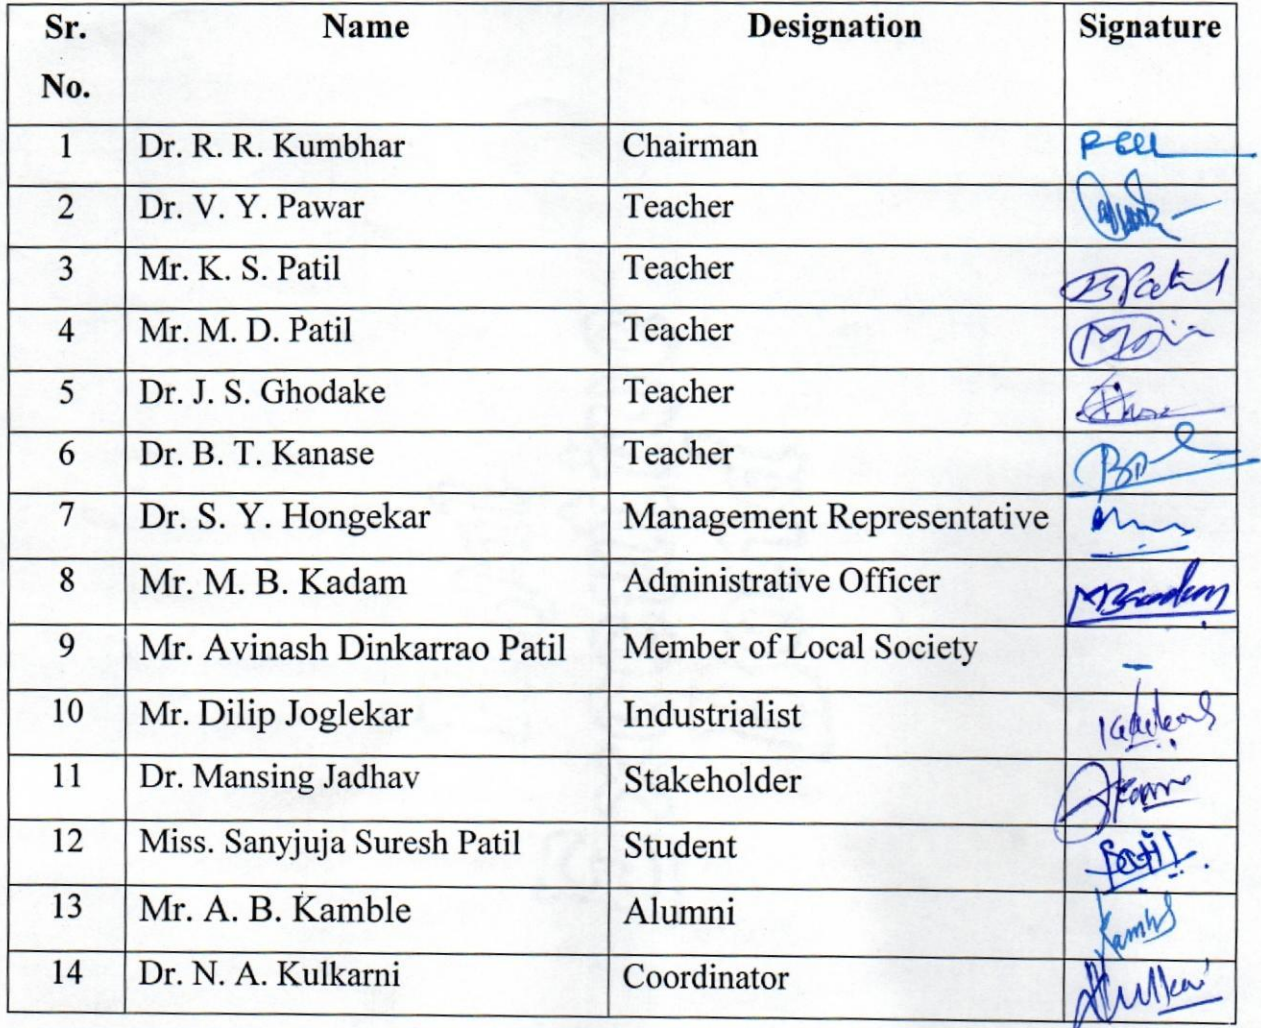 Sr. No. Name Designation Signature
1 Dr. R. R. Kumbhar Chairman
2 Dr. V. Y. Pawar Teacher
3 Mr. K. S. Patil Teacher
4 Mr. M. D. Patil Teacher
5 Dr. J. S. Ghodake Teacher
6 Dr. B. T. Kanase Teacher
7 Dr. S. Y. Hongekar Management Representative
8 Mr. M. B. Kadam Administrative Officer
9 Mr. Avinash Dinkarrao Patil Member of Local Society
10 Mr. Dilip Joglekar Industrialist
11 Dr. Mansing Jadhav Stakeholder
12 Miss. Sanyjuja Suresh Patil Student
13 Mr. A. B. Kamble Alumni
14 Dr. N. A. Kulkarni Coordinator